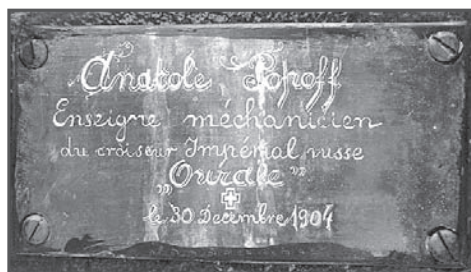 Anatole Popoff
Enseigne méchanicien
du croiseur Impérial russe
„Ourale"
le 30 Decembre 1904